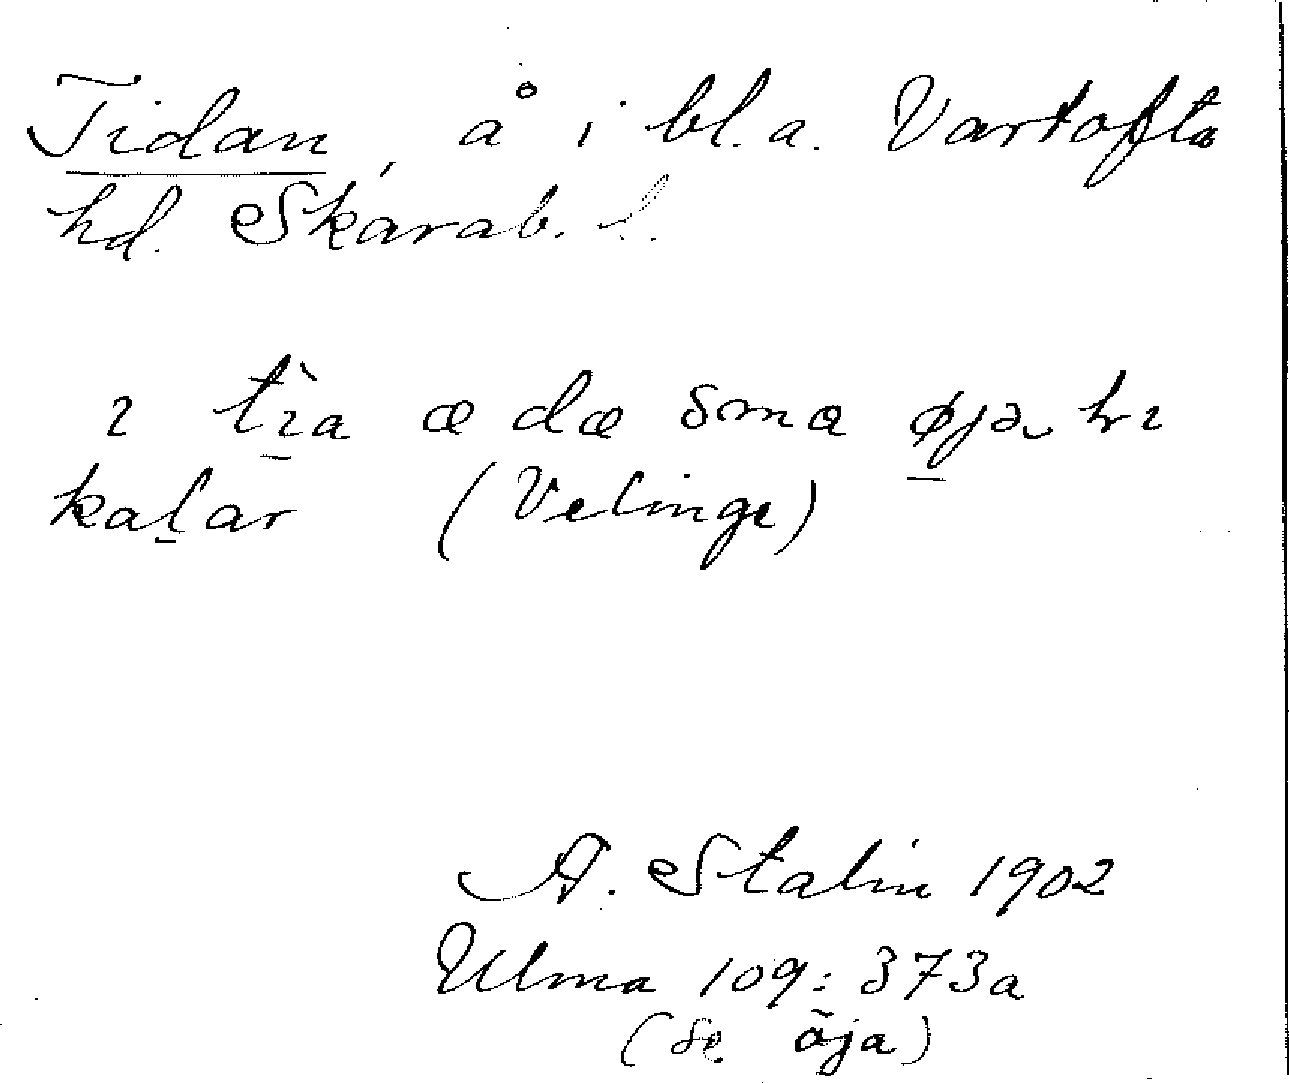 Tidan, å i bl.a. Vartofta
hd. Skarab. l.
ı tı̱̀a æ dæ sma ø̱jə hı
kaḻar (Velinge)
A. Stalin 1902
Ulma 109:373a
(se öja)